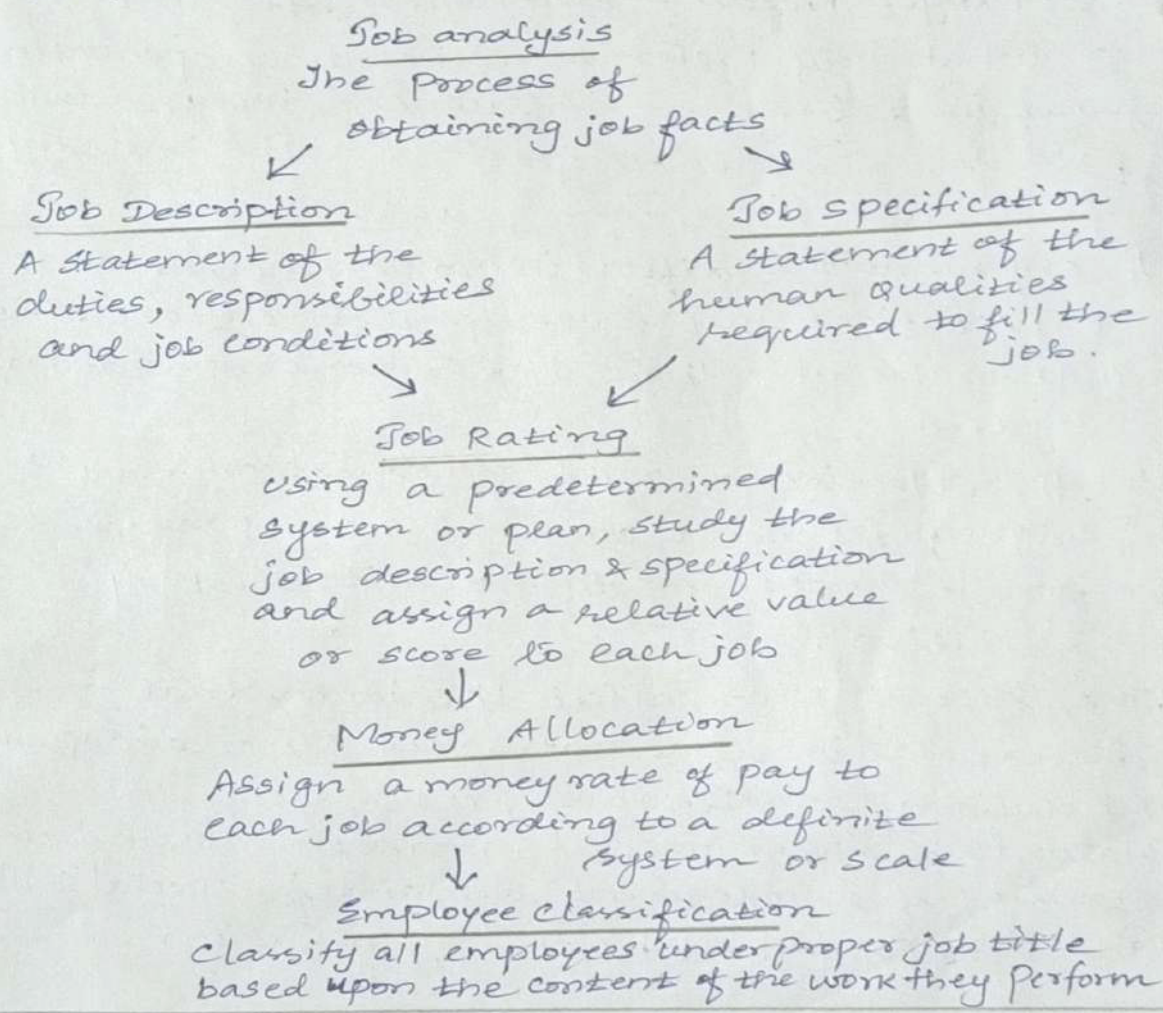 Job analysis
The process of
obtaining job facts
Job Description
A statement of the
duties, responsibilities
and job conditions
Job specification
A statement of the
human Qualities
required to fill the
job.
Job Rating
Using a predetermined
system or plan, study the
job description & specification
and assign a relative value
or score to each job
Money Allocation
Assign a money rate of pay to
each job according to a definite
system or scale
Employee classification
Classify all employees under proper job title
based upon the content of the work they perform